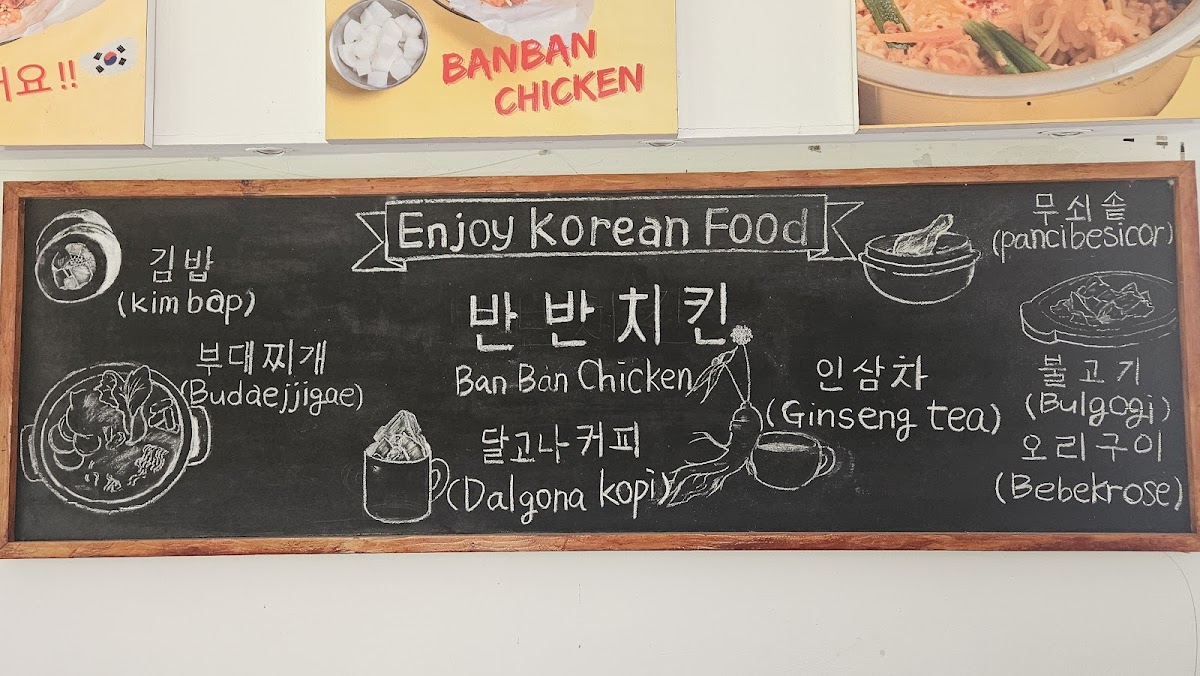 요!!
BANBAN
CHICKEN
Enjoy Korean Food
김밥
(kimbap)
부대찌개
(Budaejjigae)
반반치킨
Ban Ban Chicken
달고나커피
(Dalgona kopi)
인삼차
(Ginseng tea)
무쇠솥
(pancibesicor)
불고기
(Bulgogi)
오리구이
(Bebekrose)